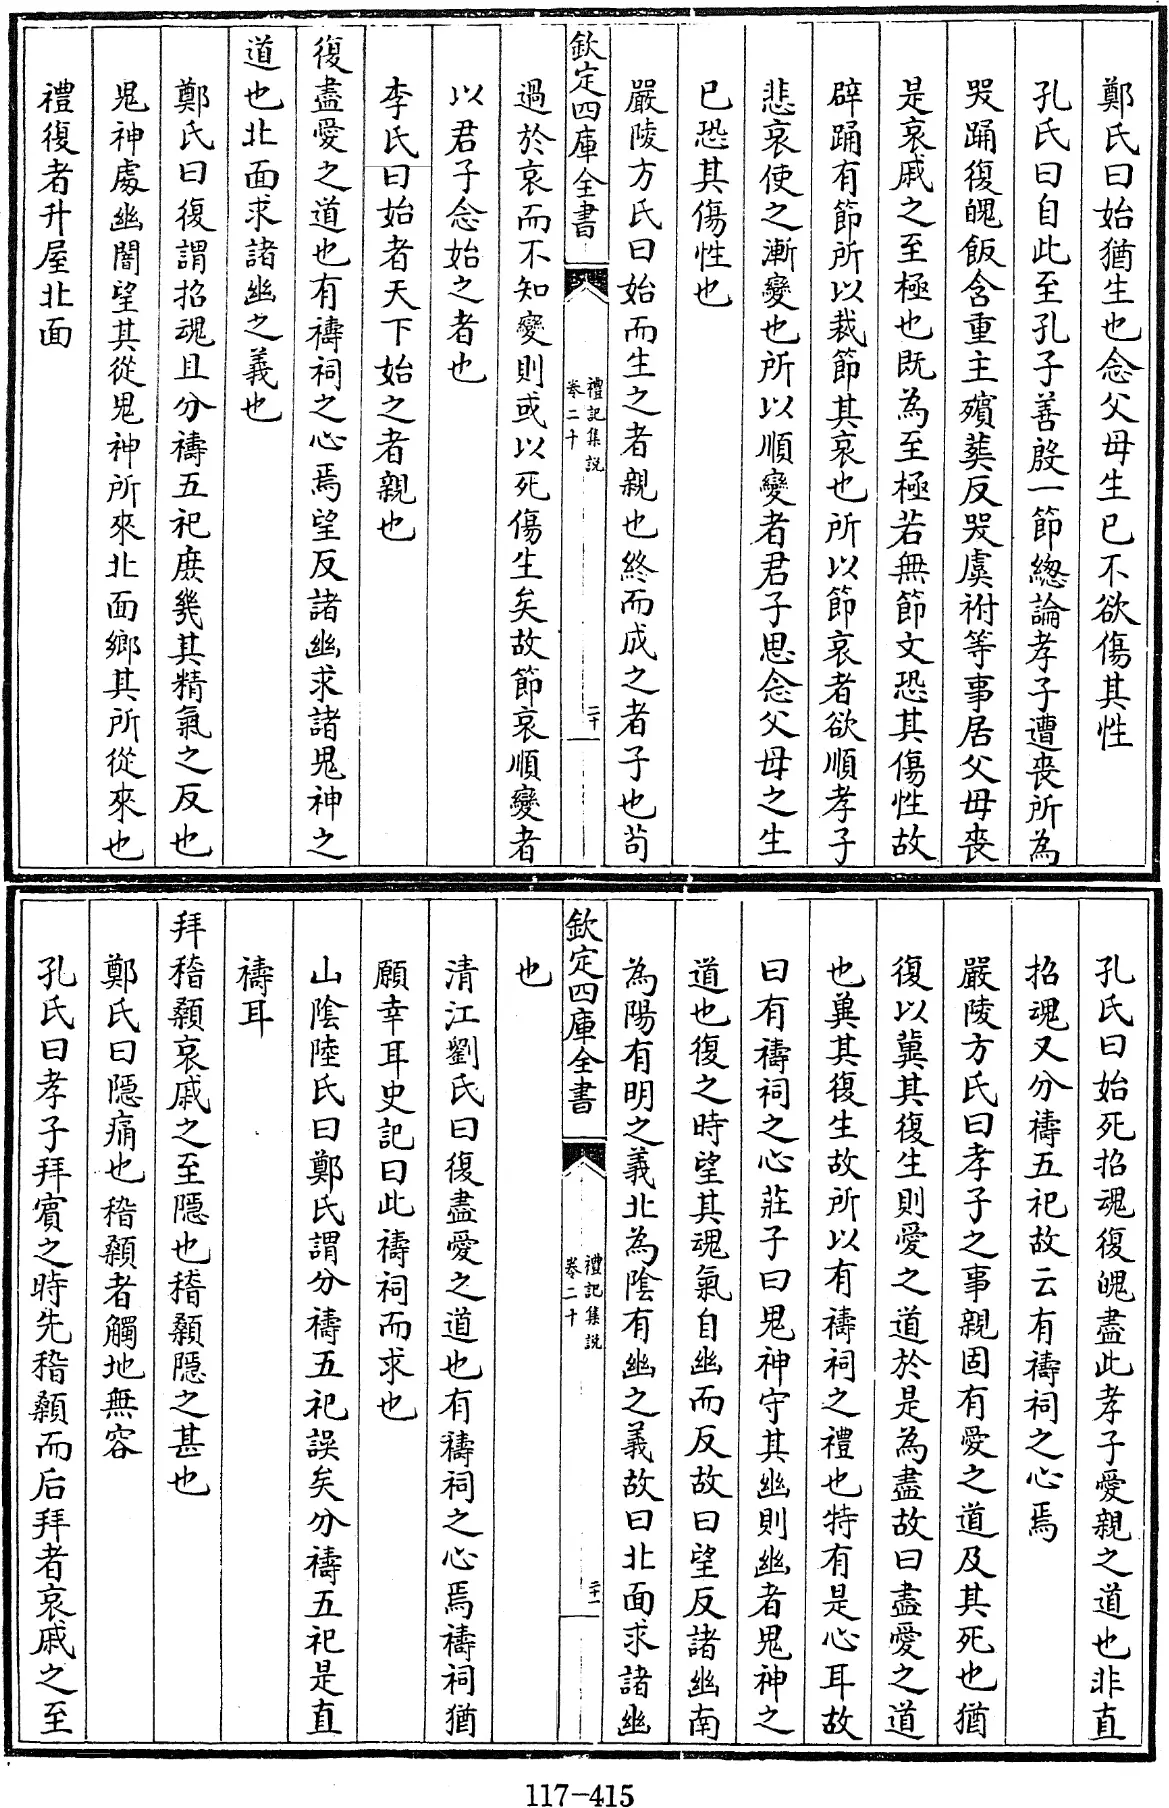 鄭氏曰始猶生也念父母生已不欲傷其性
孔氏曰自此至孔子善殷一節緫論孝子遭喪所為
哭踊復魄飯含重主殯葬反哭虞祔等事居父母喪
是哀戚之至極也既為至極若無節文恐其傷性故
辟踊有節所以裁節其哀也所以節哀者欲順孝子
悲哀使之漸變也所以順變者君子思念父母之生
已恐其傷性也
嚴陵方氏曰始而生之者親也終而成之者子也苟
欽定四庫全書
禮記集說
卷二十
二十
過於哀而不知變則或以死傷生矣故節哀順變者
以君子念始之者也
李氏曰始者天下始之者親也
復盡愛之道也有禱祠之心焉望反諸幽求諸鬼神之
道也北面求諸幽之義也
鄭氏曰復謂招魂且分禱五祀庶幾其精氣之反也
鬼神處幽闇望其從鬼神所來北面鄉其所從來也
禮復者升屋北面
孔氏曰始死招魂復魄盡此孝子愛親之道也非直
招魂又分禱五祀故云有禱祠之心焉
嚴陵方氏曰孝子之事親固有愛之道及其死也猶
復以冀其復生則愛之道於是為盡故曰盡愛之道
也冀其復生故所以有禱祠之禮也特有是心耳故
曰有禱祠之心莊子曰鬼神守其幽則幽者鬼神之
道也復之時望其魂氣自幽而反故曰望反諸幽南
為陽有明之義北為陰有幽之義故曰北面求諸幽
欽定四庫全書
禮記集說
卷二十
二十一
也
清江劉氏曰復盡愛之道也有禱祠之心焉禱祠猶
願幸耳史記曰此禱祠而求也
山陰陸氏曰鄭氏謂分禱五祀誤矣分禱五祀是直
禱耳
拜稽顙哀戚之至隱也稽顙隱之甚也
鄭氏曰隱痛也稽顙者觸地無容
孔氏曰孝子拜賔之時先稽顙而后拜者哀戚之至
117-415